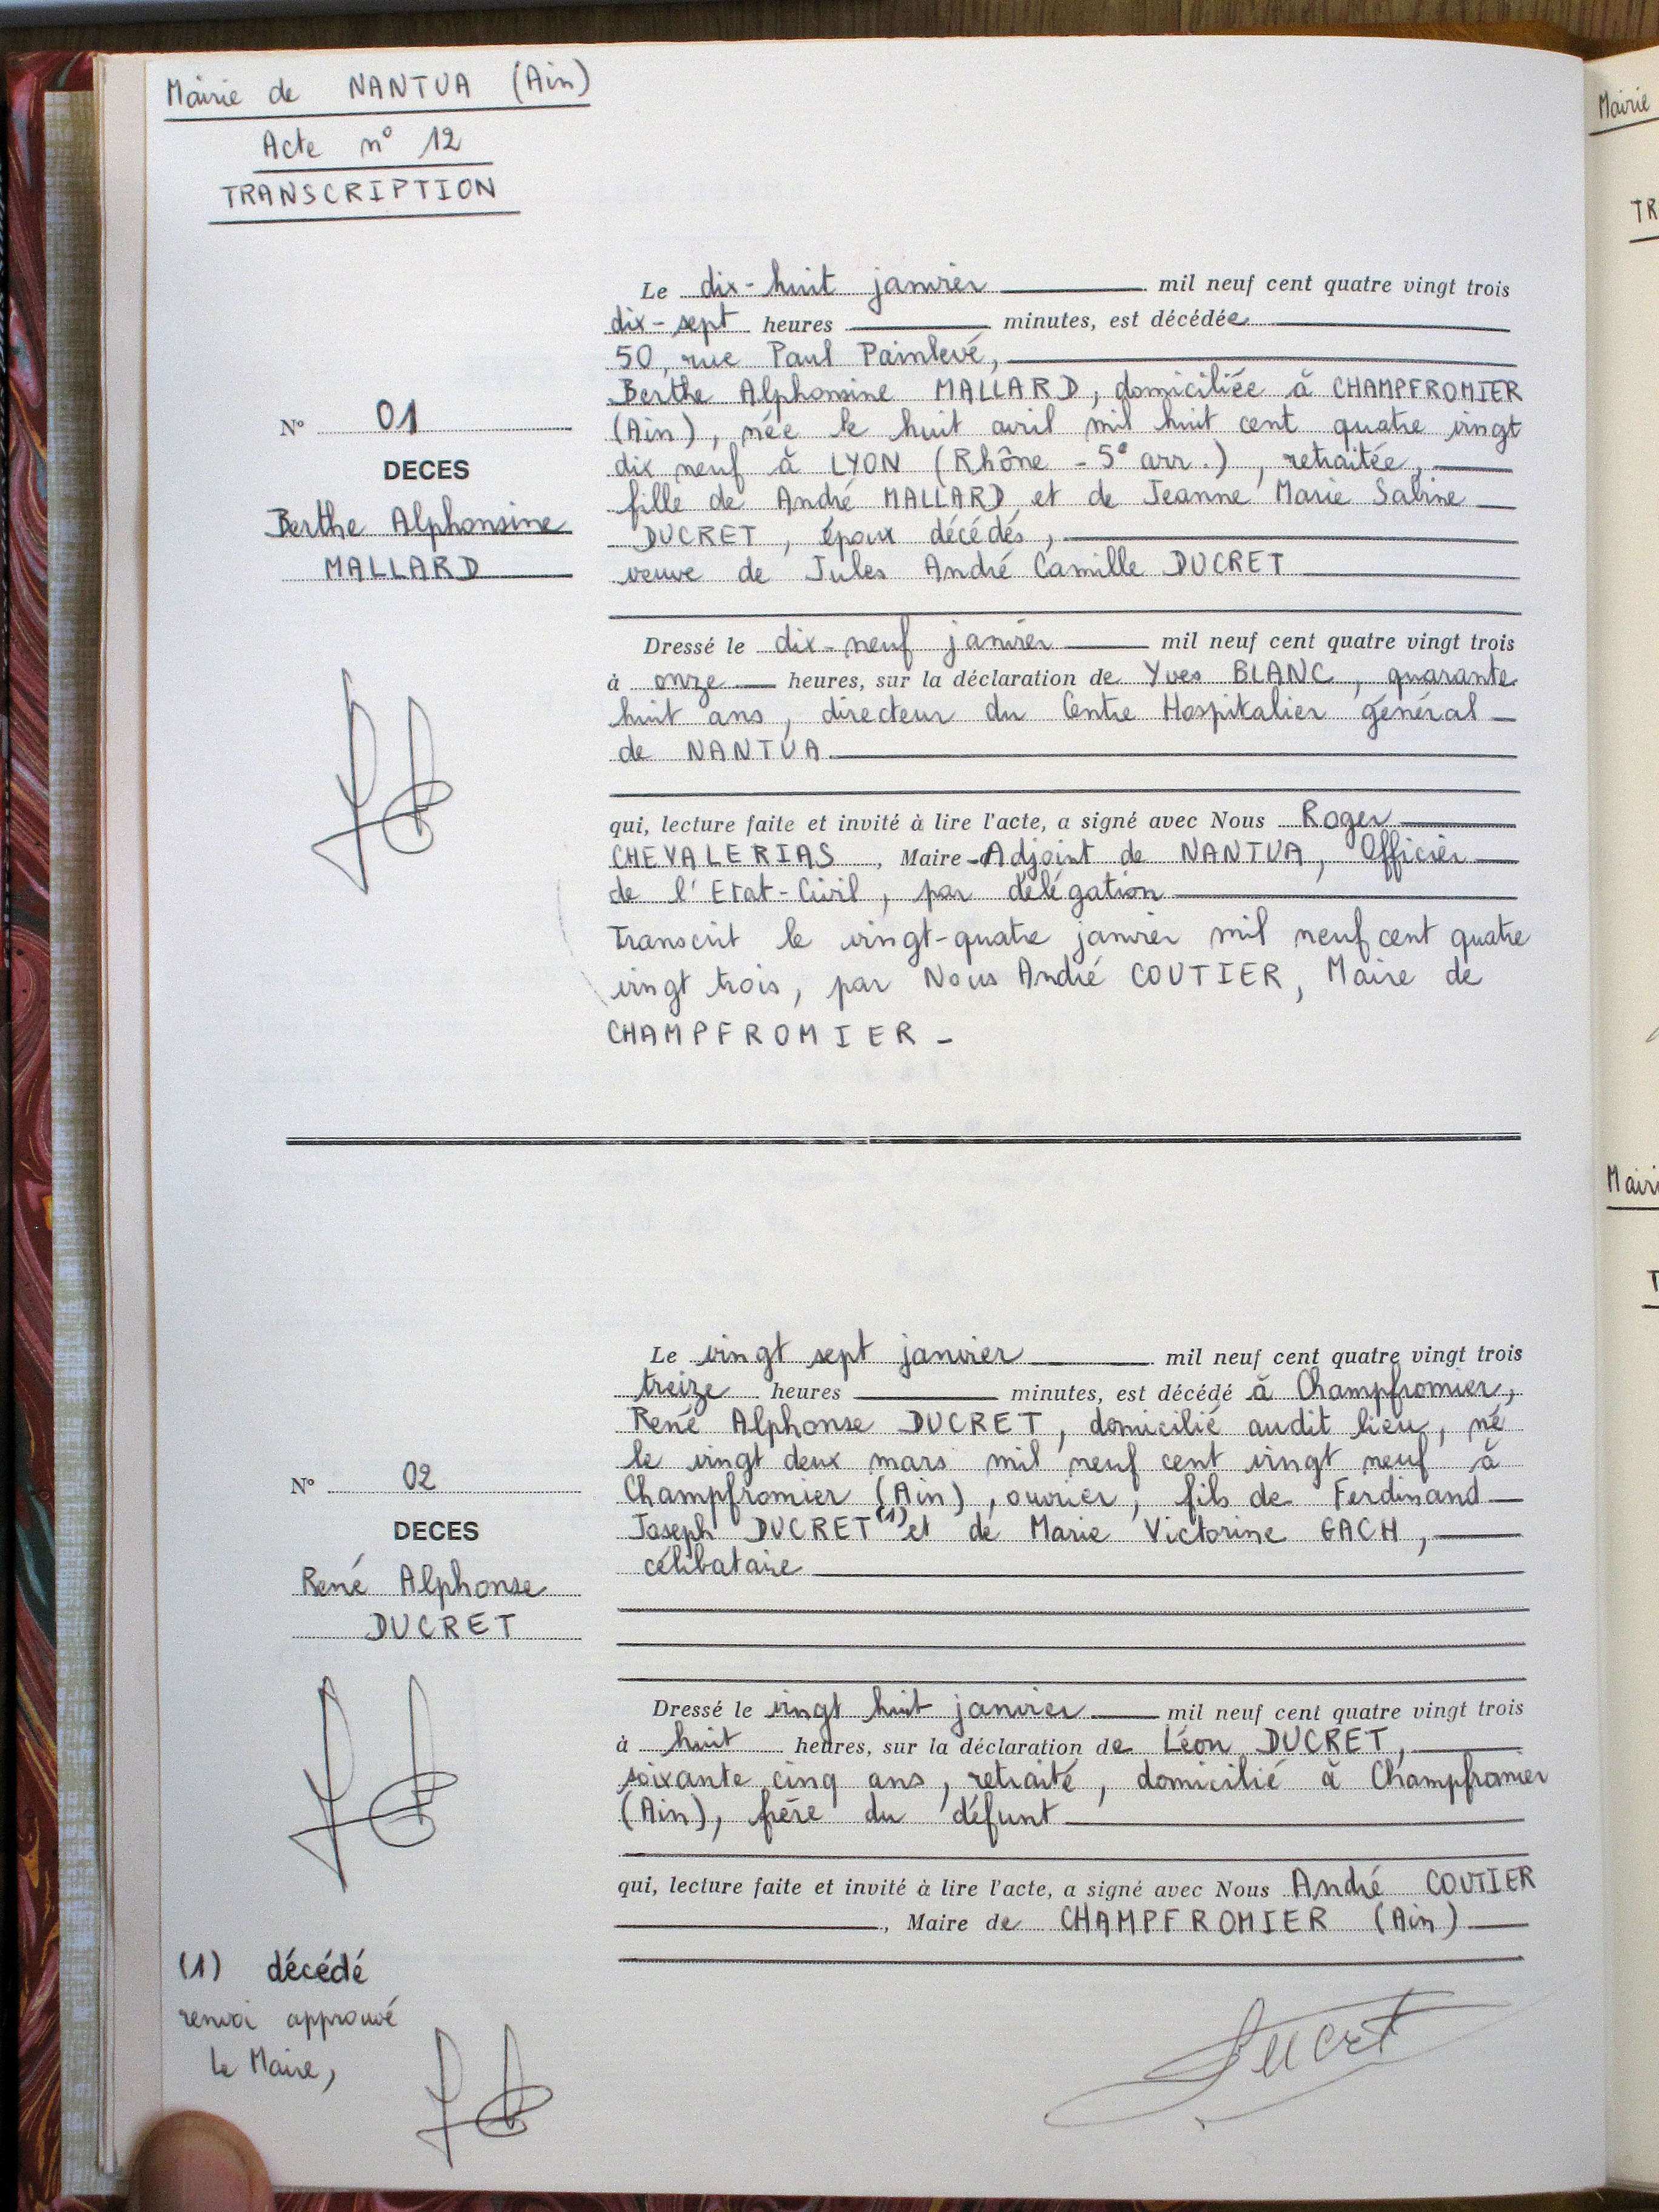 Mairie de NANTUA (Ain)
Acte n° 12
TRANSCRIPTION
Le dix-huit janvier mil neuf cent quatre vingt trois
dix-sept heures minutes, est décédée
50, rue Paul Painlevé,
Berthe Alphonsine MALLARD, domiciliée à CHAMPFROMIER
(Ain), née le huit avril mil huit cent quatre vingt
dix neuf à LYON (Rhône - 5° arr.), retraitée,
fille de André MALLARD et de Jeanne Marie Sabine
DUCRET, époux décédés,
veuve de Jules André Camille DUCRET
N° 01
DECES
Berthe Alphonsine
MALLARD
Dressé le dix-neuf janvier mil neuf cent quatre vingt trois
à onze heures, sur la déclaration de Yves BLANC, quarante
huit ans, directeur du Centre Hospitalier général
de NANTUA
qui, lecture faite et invité à lire l'acte, a signé avec Nous Roger
CHEVALERIAS, Maire-Adjoint de NANTUA, Officier
de l'Etat-Civil, par délégation
Transcrit le vingt-quatre janvier mil neuf cent quatre
vingt trois, par Nous André COUTIER, Maire de
CHAMPFROMIER -
Le vingt sept janvier mil neuf cent quatre vingt trois
treize heures minutes, est décédé à Champfromier,
René Alphonse DUCRET, domicilié audit lieu, né
le vingt deux mars mil neuf cent vingt neuf à
Champfromier (Ain), ouvrier, fils de Ferdinand
Joseph DUCRET (1) et de Marie Victorine GACH,
célibataire
N° 02
DECES
René Alphonse
DUCRET
Dressé le vingt huit janvier mil neuf cent quatre vingt trois
à huit heures, sur la déclaration de Léon DUCRET,
soixante cinq ans, retraité, domicilié à Champfromier
(Ain), frère du défunt
qui, lecture faite et invité à lire l'acte, a signé avec Nous André COUTIER
, Maire de CHAMPFROMIER (Ain)
(1) décédé
renvoi approuvé
le Maire,
Ducret
Mairie
TR
Mairi
T